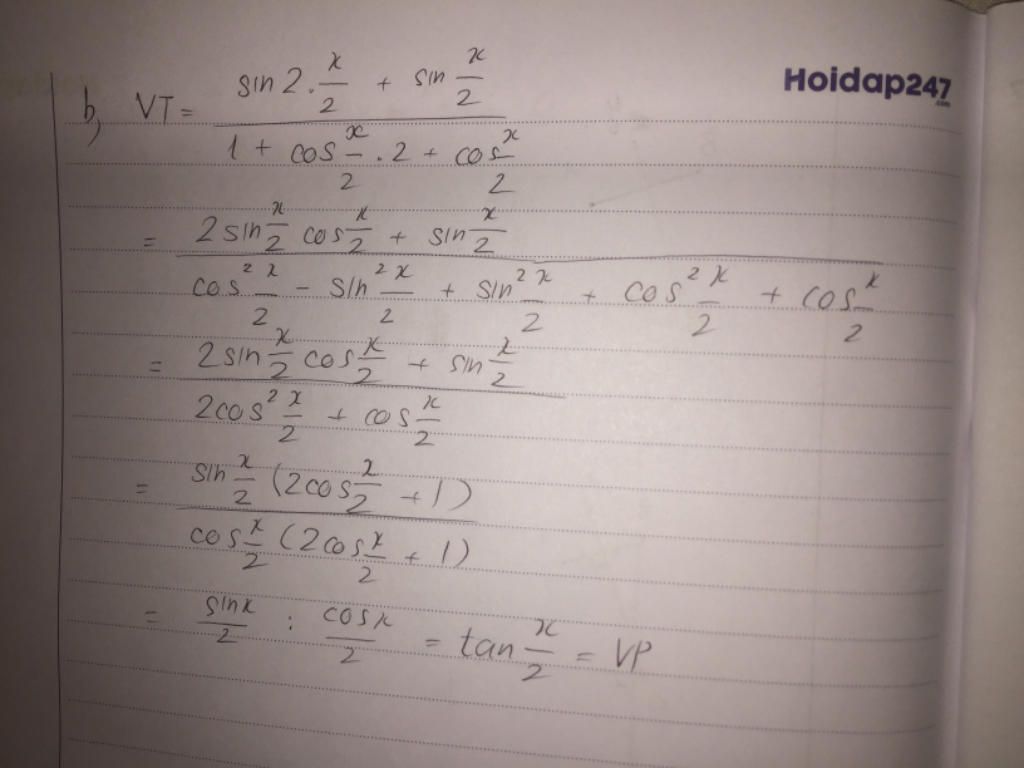 Hoidap247.com
b, VT = (sin 2 . x/2 + sin x/2) / (1 + cos x/2 . 2 + cos x/2)
= (2 sin x/2 cos x/2 + sin x/2) / (cos² x/2 - sin² x/2 + sin² x/2 + cos² x/2 + cos x/2)
= (2 sin x/2 cos x/2 + sin x/2) / (2cos² x/2 + cos x/2)
= (sin x/2 (2cos x/2 + 1)) / (cos x/2 (2cos x/2 + 1))
= sinx/2 : cosx/2 = tan x/2 = VP